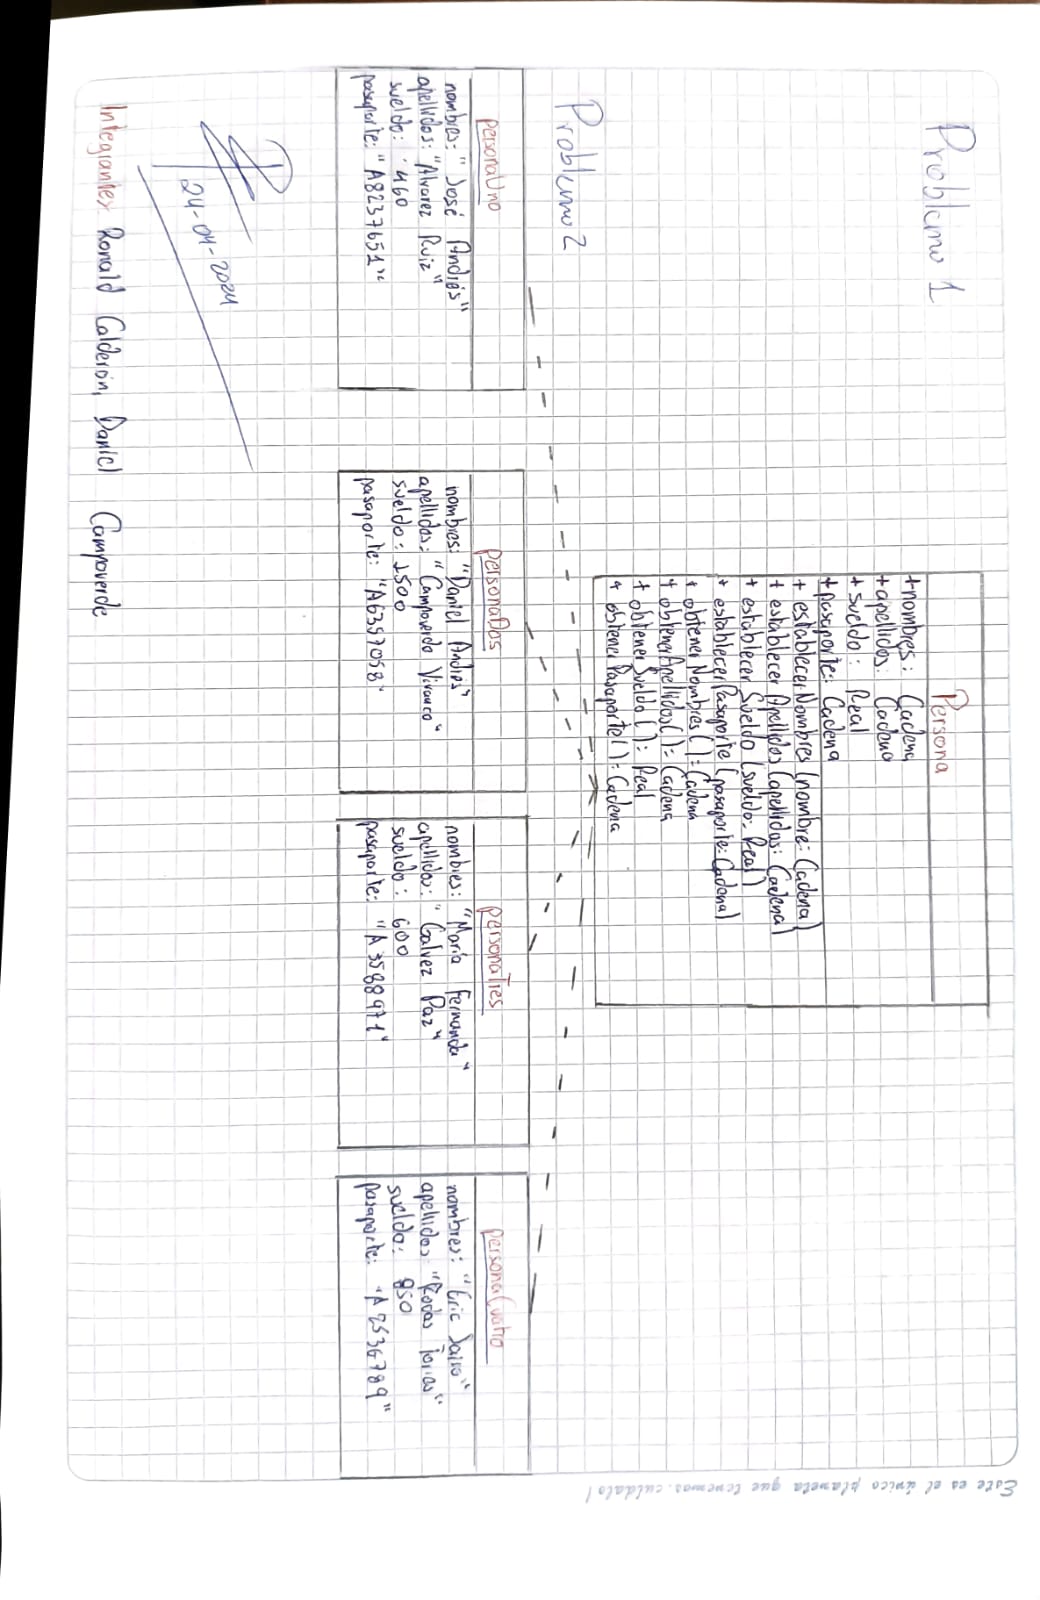 Problema 1
Persona
+nombres: Cadena
+apellidos: Cadena
+sueldo: Real
+pasaporte: Cadena
+ establecerNombres (nombre: Cadena)
+ establecer Apellidos (apellidos: Cadena)
+ establecer Sueldo (sueldo: Real)
+ establecerPasaporte (pasaporte: Cadena)
+ obtener Nombres ( ): Cadena
+ obtenerApellidos( ): Cadena
+ obtener Sueldo ( ): Real
+ obtener Pasaporte( ): Cadena
Problema 2
personaUno
nombres: "José Andrés"
apellidos: "Alvarez Ruiz"
sueldo: 460
pasaporte: "A8237651"
personaDos
nombres: "Daniel Andrés"
apellidos: "Campoverde Vivanco"
sueldo: 1500
pasaporte: "A6357058"
personaTres
nombres: "María Fernanda"
apellidos: "Galvez Paz"
sueldo: 600
pasaporte: "A3588971"
personaCuatro
nombres: "Eric Jairo"
apellidos: "Rodas"
sueldo: 850
pasaporte: "A2536789"
24-04-2024
Integrantes: Ronald Calderón, Daniel Campoverde
Este es el único planeta que tenemos. cuídalo!